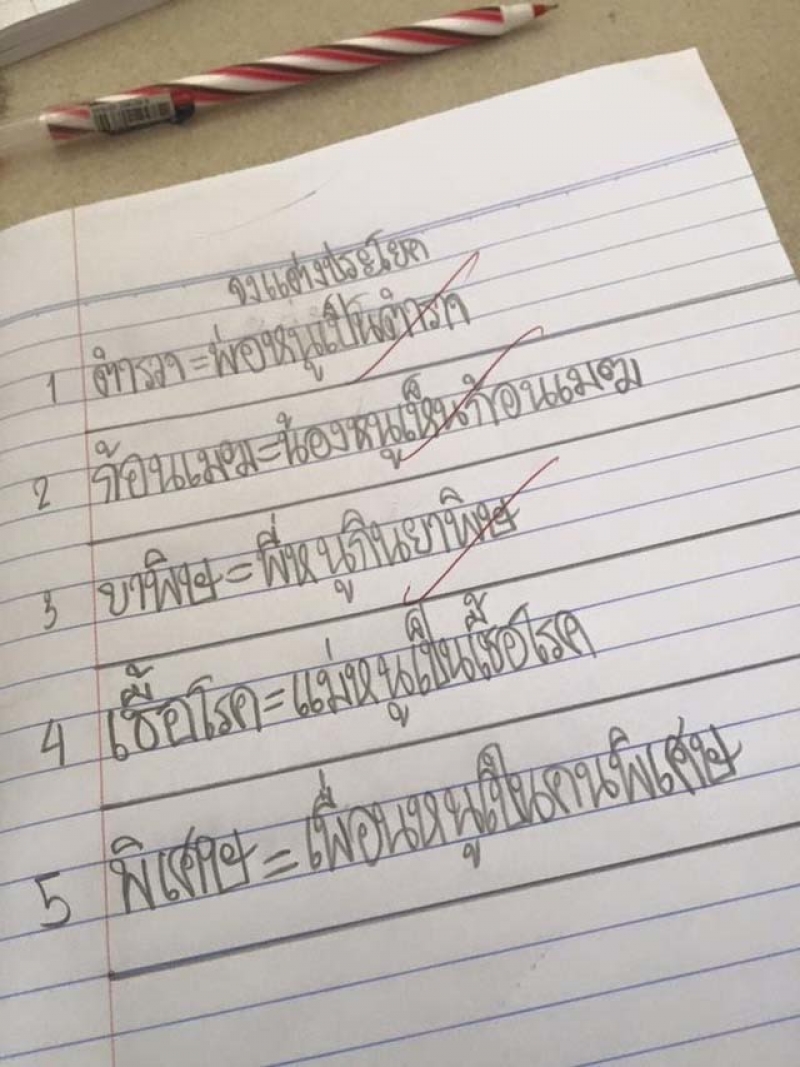 จงแต่งประโยค
1 ตำรวจ=พ่อหนูเป็นตำรวจ
2 ก้อนเมฆ=น้องหนูเห็นก้อนเมฆ
3 ยาพิษ=พี่หนูกินยาพิษ
4 เชื้อโรค=แม่หนูเป็นเชื้อโรค
5 พิเศษ=เพื่อนหนูเป็นคนพิเศษ